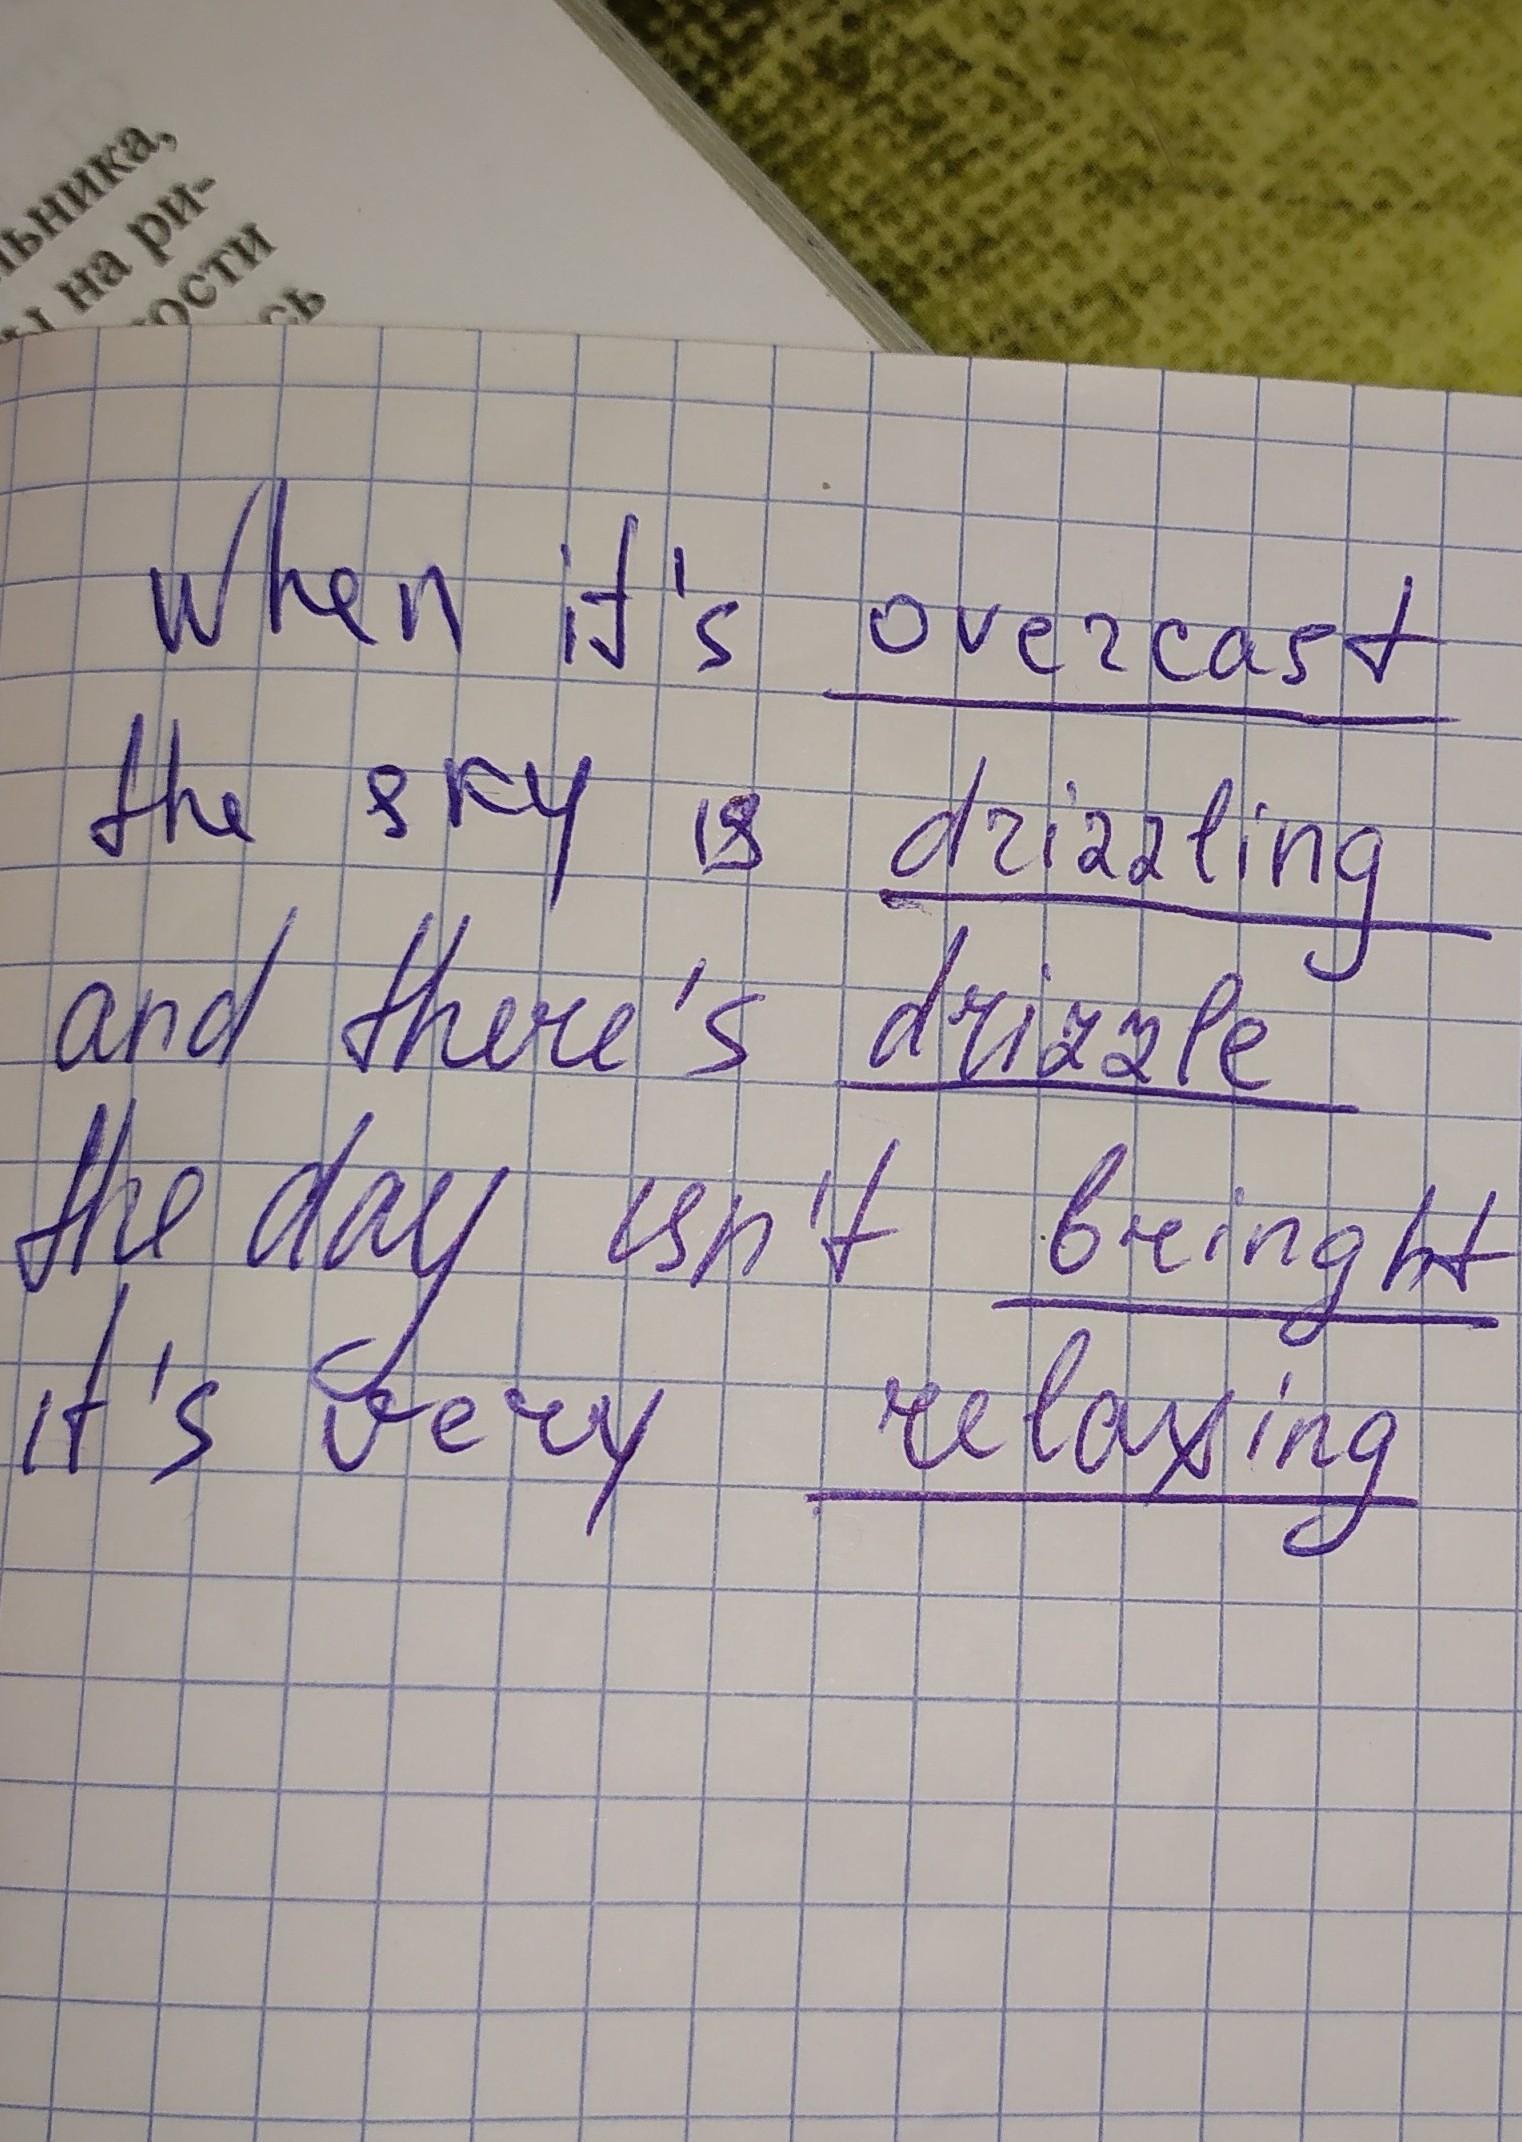 льника,
ы на ри-
ости
сь
When it's overcast
the sky is drizzling
and there's drizzle
the day isn't bringht
it's very relaxing